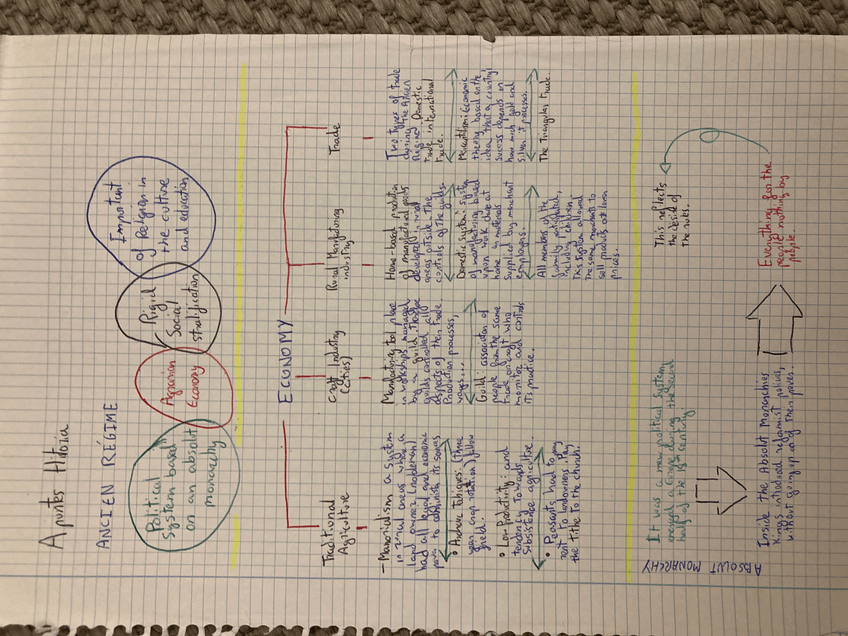 Apuntes Hitoria
ANCIEN RÉGIME
Political
System based
on an absolut
monarchy
Agrarian
Economy
Rigid
Social
stratification
Important
of Religion in
the culture
and education
ECONOMY
Traditional
Agriculture
- Manorialism a System
in rural areas where a
land owner (nobleman)
had all legal and economic
power to administ its
• Archaic Tecniques. (Three
year crop rotation) fallow
field.
• Low Productivity: and
tendency Towards
Subsistence agriculture.
• Peasants had to pay
rent To landowners. Pay
the Tithe to the church.
Craft Industry
(Cities)
Manufacturing took place
in workshops managed
by a guild.
guilds controlled all
aspects of their trade
Production processes,
wages...
Guild: association of
people from the same
trade or craft who
monitor and controls
its practice.
Rural Manufacturing
industry
Home-based production
of manufactured goods
developed in rural
areas outside the
controls of the guilds.
Domestic System: a system
of manufacturing based
upon work done at
home in materials
supplied by merchant
employers.
All members of the
family participated,
including children.
This system allowed
the same merchants to
sell products at lower
prices.
Trade
Two types of trade
during the Ancien
Regime: Domestic
trade international
trade.
Mercantilism: Economic
theory based on the
idea that a country
success depends on
how much gold and
silver it processes.
The Triangular Trade.
ABSOLUT MONARCHY
It was a new political system
in Europe during the second
half of the 18 century
Inside the Absolut Monarchies
Kings introduced reformist policies,
without giving up any of their powers.
Everything for the
people nothing by
people.
This reflects
the desire of
the rules.